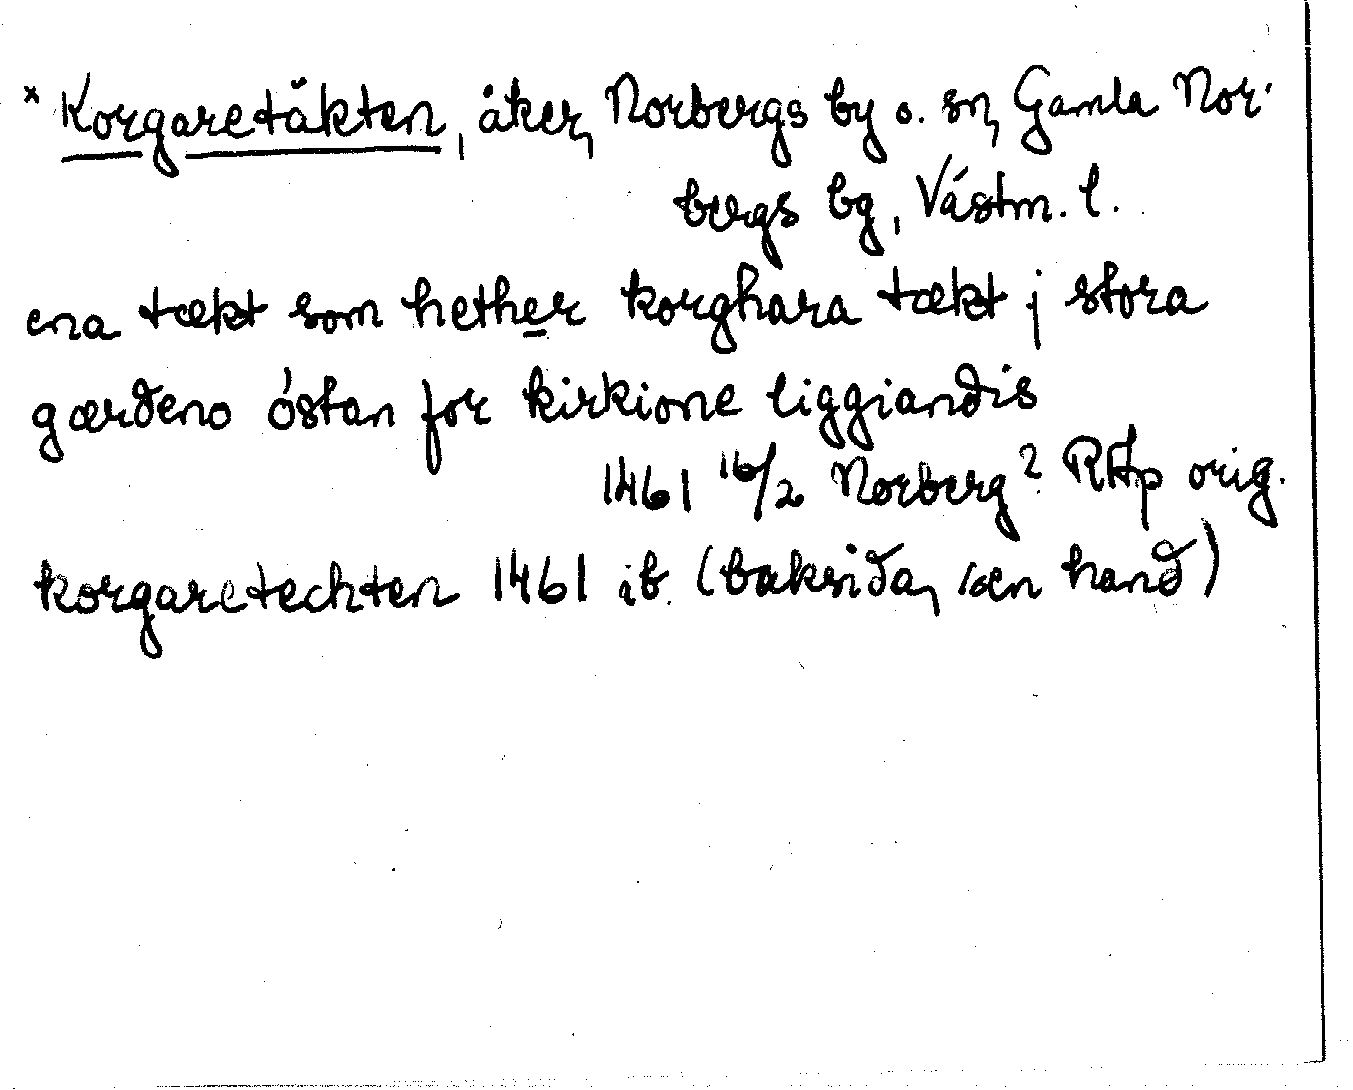 × Korgaretäkten, åker, Norbergs by o. sn, Gamla Nor-
bergs bg, Västm. l.
ena tækt som hether korghara tækt j stora
gærdeno östan for kirkione liggiandis
1461 16/2 Norberg? RAp orig.
korgaretechten 1461 ib. (baksida, hand)